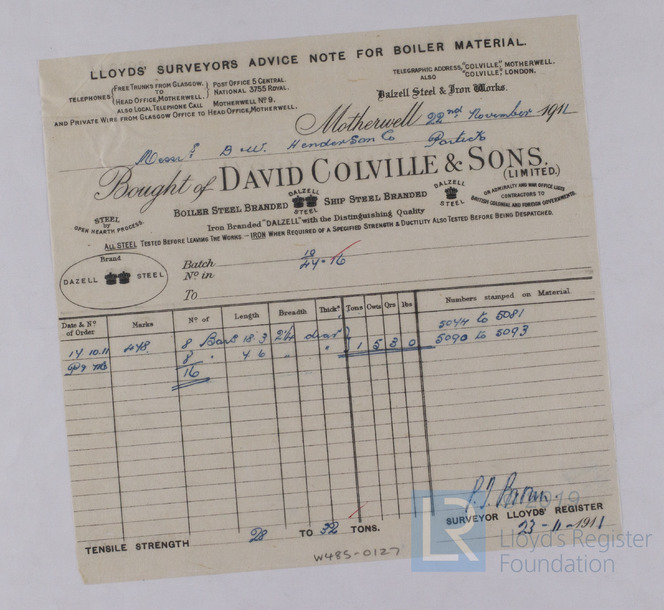 LLOYDS' SURVEYORS ADVICE NOTE FOR BOILER MATERIAL.
TELEPHONES { FREE TRUNKS FROM GLASGOW. TO HEAD OFFICE, MOTHERWELL. } POST OFFICE 5 CENTRAL. NATIONAL 3755 ROYAL.
ALSO LOCAL TELEPHONE CALL MOTHERWELL Nº 9.
AND PRIVATE WIRE FROM GLASGOW OFFICE TO HEAD OFFICE, MOTHERWELL.
TELEGRAPHIC ADDRESS, "COLVILLE", MOTHERWELL.
ALSO "COLVILLE", LONDON.
Dalzell Steel & Iron Works.
Motherwell 22nd November 1911
Messrs D & W. Henderson Co Partick
Bought of DAVID COLVILLE & SONS.
(LIMITED.)
STEEL by OPEN HEARTH PROCESS.
BOILER STEEL BRANDED DALZELL STEEL SHIP STEEL BRANDED DALZELL STEEL
ON ADMIRALTY AND WAR OFFICE LISTS
CONTRACTORS TO
BRITISH COLONIAL AND FOREIGN GOVERNMENTS.
Iron Branded "DALZELL" with the Distinguishing Quality
ALL STEEL TESTED BEFORE LEAVING THE WORKS.—IRON WHEN REQUIRED OF A SPECIFIED STRENGTH & DUCTILITY ALSO TESTED BEFORE BEING DESPATCHED.
Brand
DAZELL STEEL
Batch
Nº in
To
Date & Nº of Order Marks Nº of Length Breadth Thickˢ Tons Cwts Qrs lbs Numbers stamped on Material.
8 Bars 18 3 2¼ diar 5044 to 5081
14 10.11 448 8 " 4 6 " " 1 5 3 0 5090 to 5093
16
TENSILE STRENGTH 28 TO 32 TONS.
SURVEYOR LLOYDS' REGISTER
23-11-1911
W485-0127
© 2019
LR
Lloyd's Register
Foundation